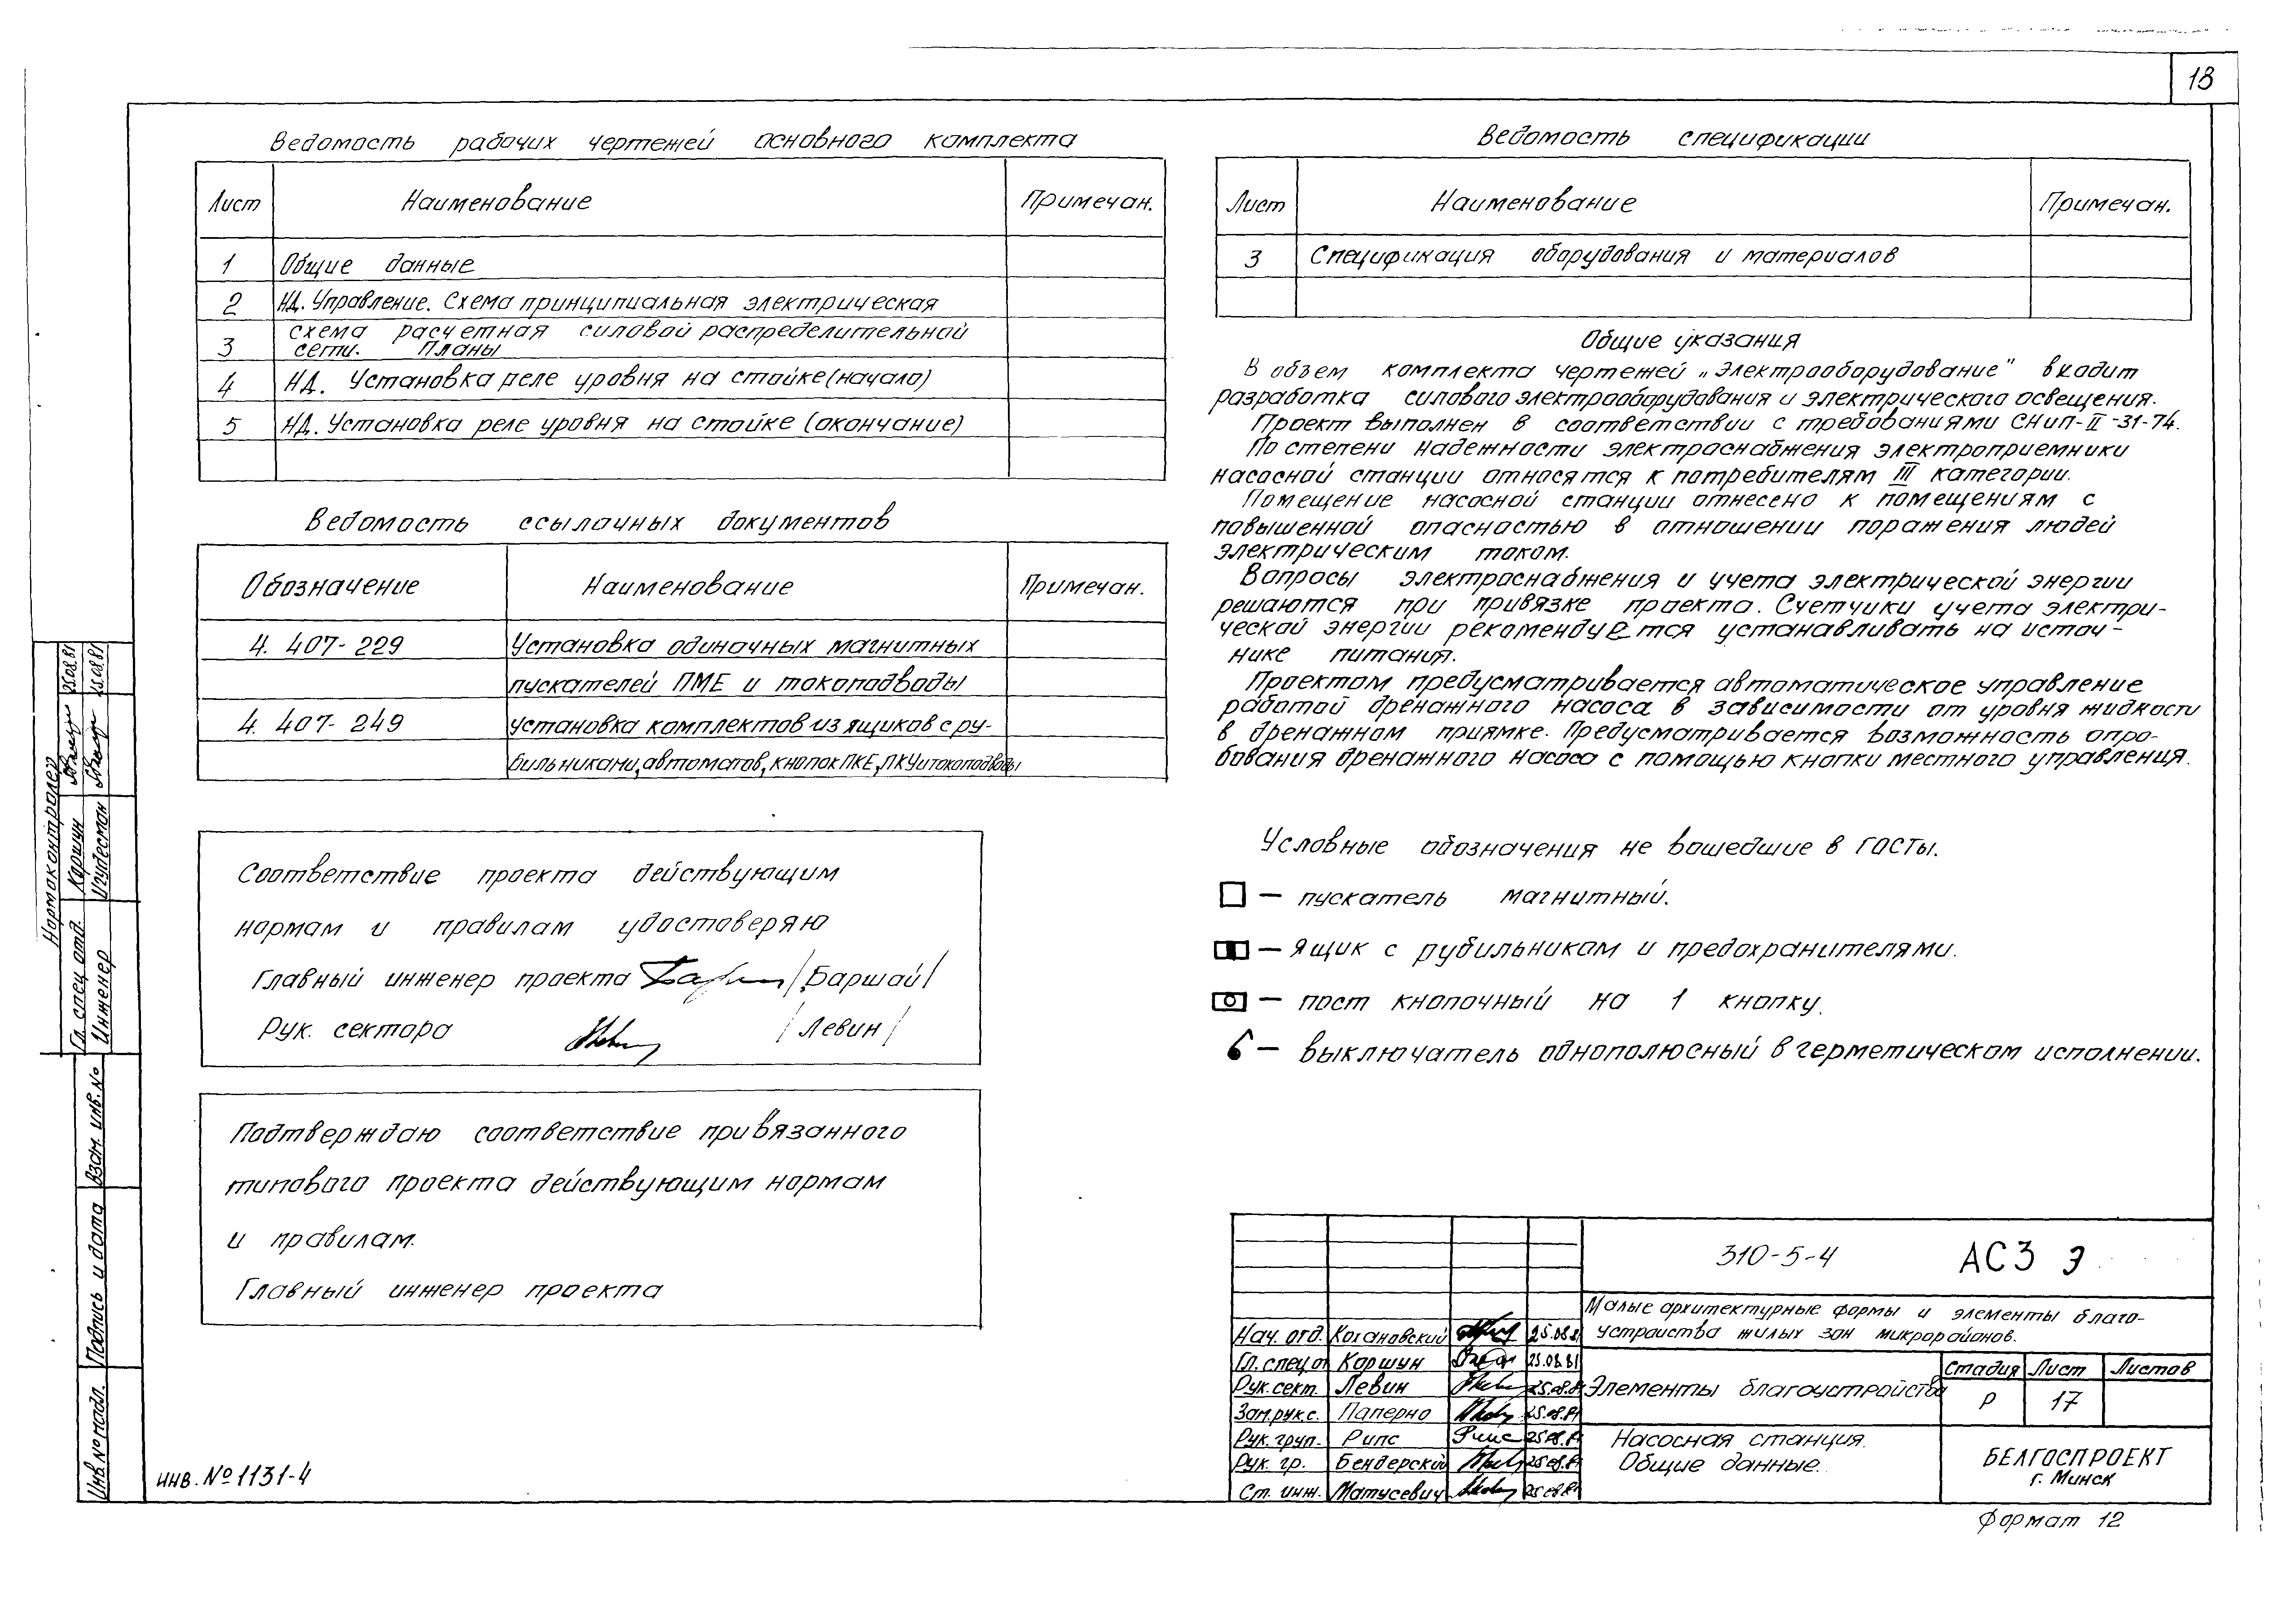 13
Ведомость рабочих чертежей основного комплекта
Лист Наименование Примечан.
1 Общие данные
2 НД. Управление. Схема принципиальная электрическая
схема расчетная силовой распределительной
3 сети. Планы
4 НД. Установка реле уровня на стойке (начало)
5 НД. Установка реле уровня на стойке (окончание)
Ведомость ссылочных документов
Обозначение Наименование Примечан.
4. 407-229 Установка одиночных магнитных
пускателей ПМЕ и токоподводы
4. 407-249 установка комплектов из ящиков с ру-
бильниками, автоматов, кнопок ПКЕ, ПКУ и токоподводы
Соответствие проекта действующим
нормам и правилам удостоверяю
Главный инженер проекта /Баршай/
Рук. сектора /Левин/
Подтверждаю соответствие привязанного
типового проекта действующим нормам
и правилам.
Главный инженер проекта
Ведомость спецификации
Лист Наименование Примечан.
3 Спецификация оборудования и материалов
Общие указания
В объем комплекта чертежей „Электрооборудование" входит
разработка силового электрооборудования и электрического освещения.
Проект выполнен в соответствии с требованиями СНиП-II-31-74.
По степени надежности электроснабжения электроприемники
насосной станции относятся к потребителям III категории.
Помещение насосной станции отнесено к помещениям с
повышенной опасностью в отношении поражения людей
электрическим током.
Вопросы электроснабжения и учета электрической энергии
решаются при привязке проекта. Счетчики учета электри-
ческой энергии рекомендуется устанавливать на источ-
нике питания.
Проектом предусматривается автоматическое управление
работой дренажного насоса в зависимости от уровня жидкости
в дренажном приямке. Предусматривается возможность опро-
бования дренажного насоса с помощью кнопки местного управления.
Условные обозначения не вошедшие в ГОСТы.
— пускатель магнитный.
— ящик с рубильником и предохранителями.
— пост кнопочный на 1 кнопку.
— выключатель однополюсный в герметическом исполнении.
310-5-4 АС3 Э
Малые архитектурные формы и элементы благо-
устройства жилых зон микрорайонов.
Нач. отд. Кохановский 25.08.81
Гл. спец. от Коршун 25.08.81
Рук. сект. Левин 25.08.81
Зам. рук. с. Паперно 25.08.81
Рук. груп. Рипс 25.08.81
Рук. гр. Бендерский 25.08.81
Ст. инж. Матусевич 25.08.81
Элементы благоустройства
Стадия Лист Листов
Р 17
Насосная станция.
Общие данные.
БЕЛГОСПРОЕКТ
г. Минск
Формат 12
инв. № 1131-4
Нормоконтролер
Гл. спец. отд. Коршун 25.08.81
Инженер 25.08.81
Взам. инв. №
Подпись и дата
Инв. № подл.